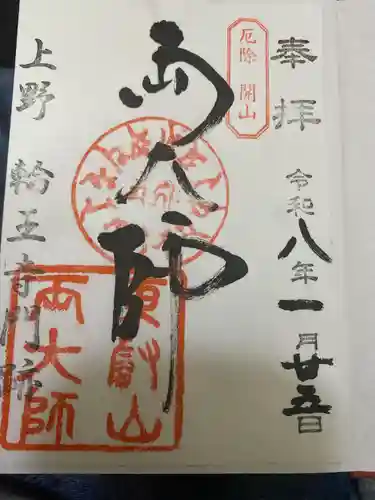 奉拝
令和八年一月廿五日
厄除 開山
両大師
上野 輪王寺門跡
東叡山
両大師